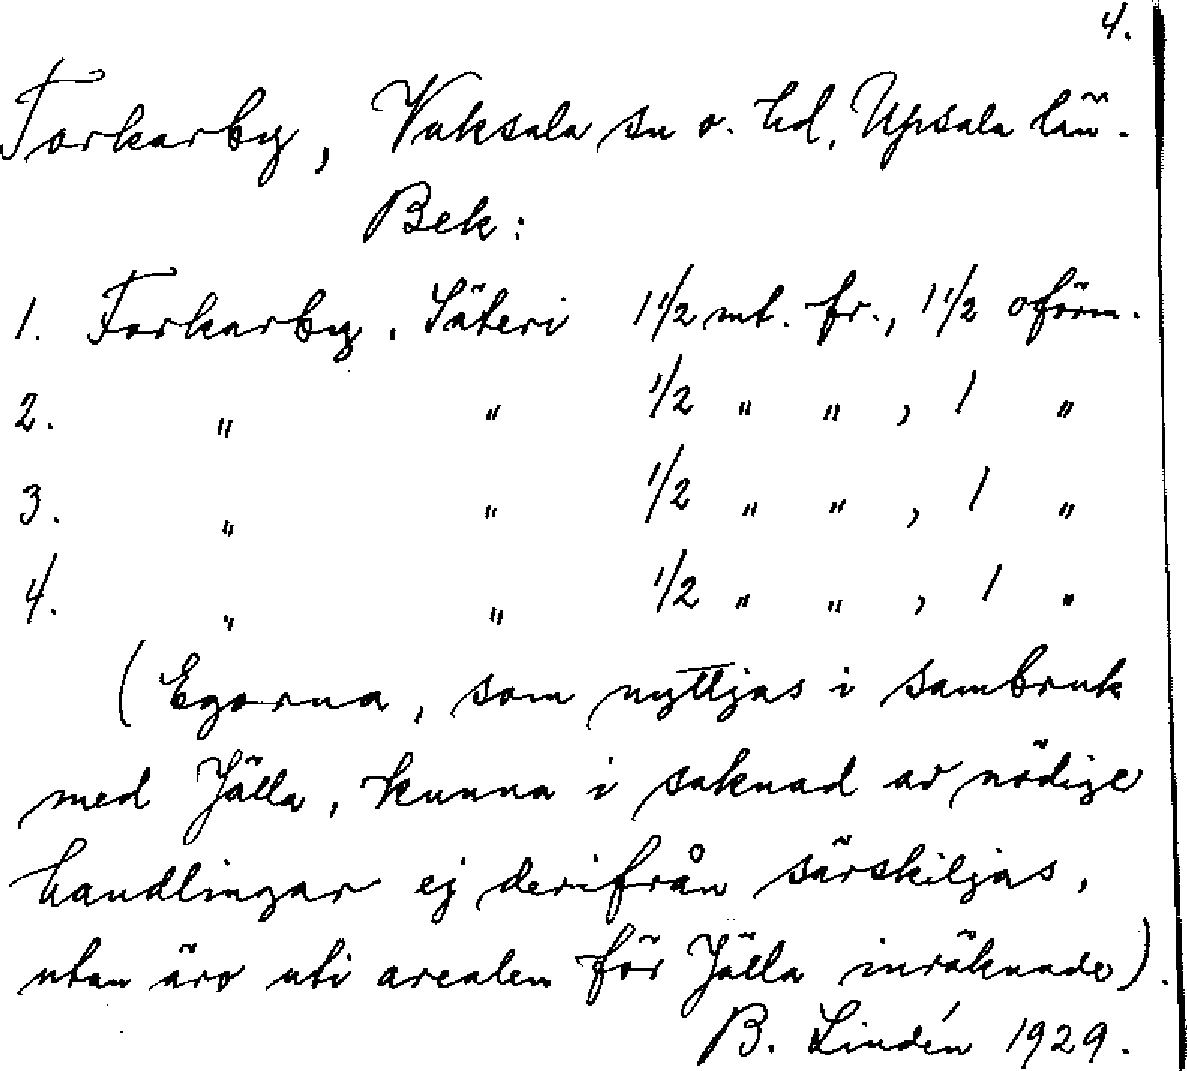 4.
Forkarby, Vaksala sn o. hd, Upsala län.
Bek:
1. Forkarby. Säteri 1 1/2 mt. fr., 1 1/2 oförm.
2. " " 1/2 " " , 1 "
3. " " 1/2 " " , 1 "
4. " " 1/2 " " , 1 "
(Egorna, som nyttjas i sambruk
med Jälla, kunna i saknad av nödige
handlingar ej derifrån särskiljas,
utan äro uti arealen för Jälla inräknade).
B. Lindén 1929.